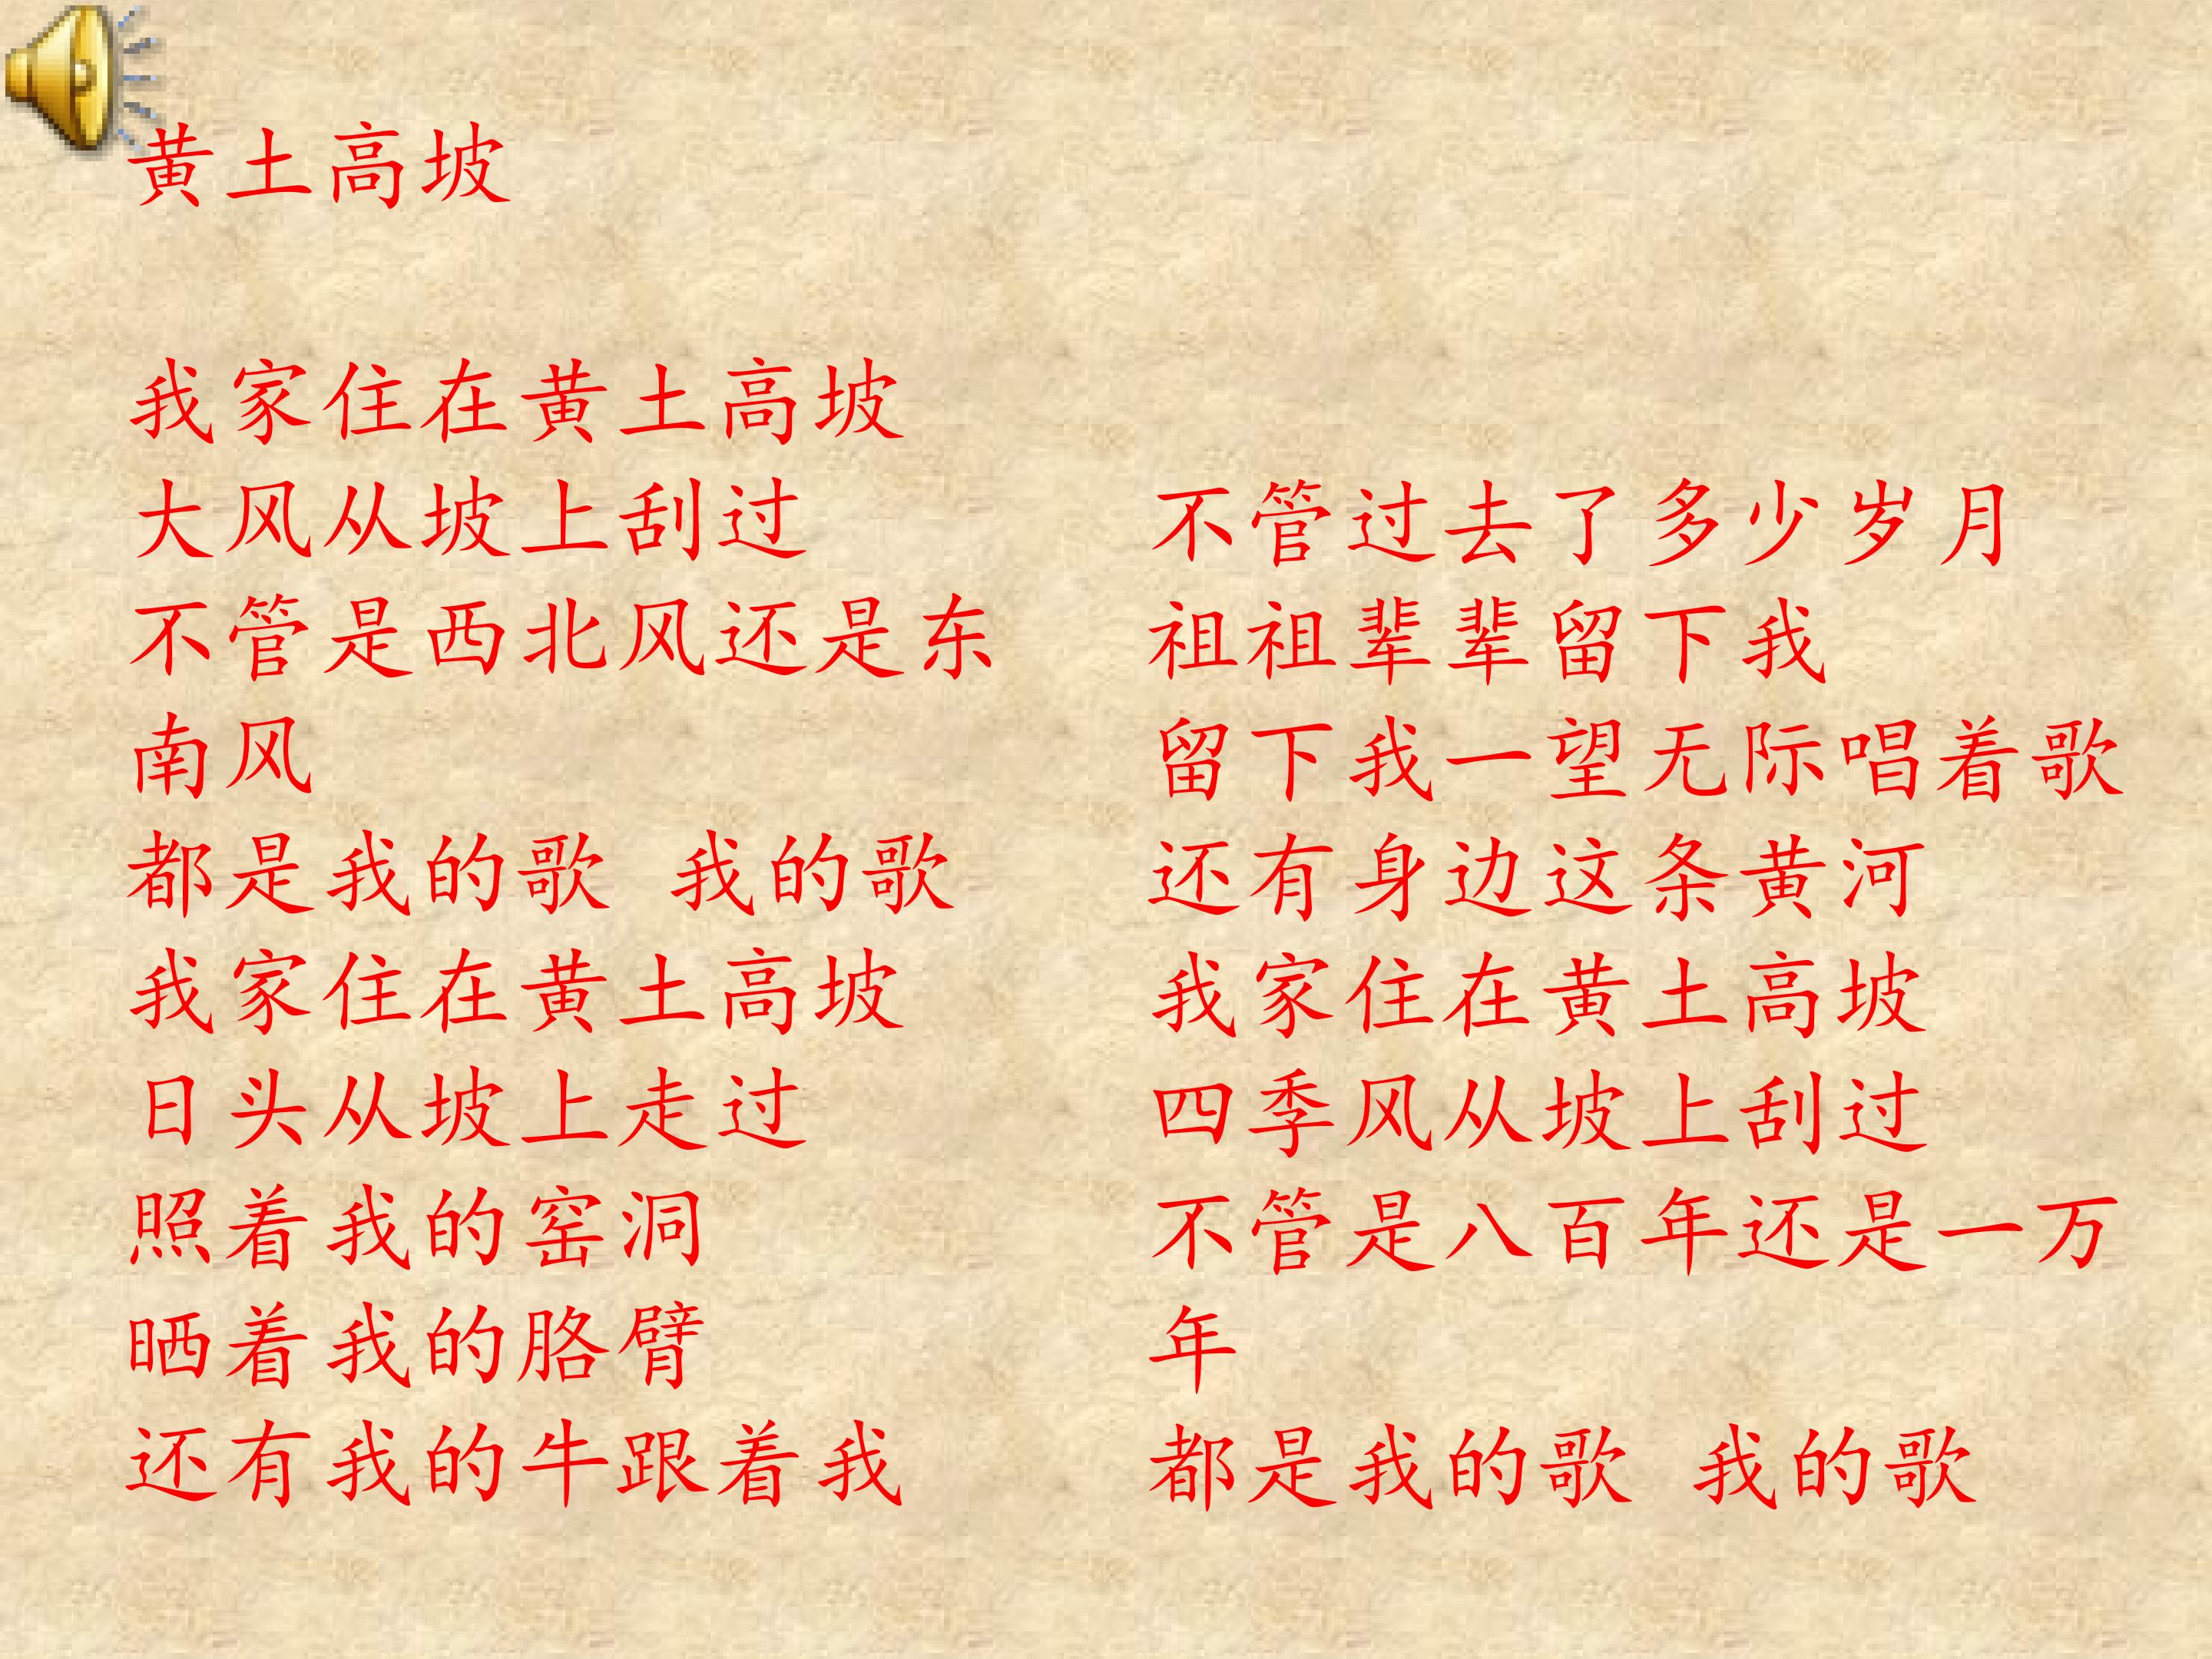 黄土高坡
我家住在黄土高坡
大风从坡上刮过
不管是西北风还是东
南风
都是我的歌 我的歌
我家住在黄土高坡
日头从坡上走过
照着我的窑洞
晒着我的胳臂
还有我的牛跟着我
不管过去了多少岁月
祖祖辈辈留下我
留下我一望无际唱着歌
还有身边这条黄河
我家住在黄土高坡
四季风从坡上刮过
不管是八百年还是一万
年
都是我的歌 我的歌